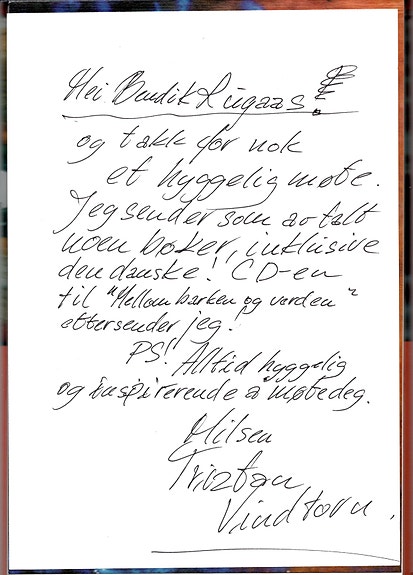 Hei Bendik Lugaas!
og takk for nok
et hyggelig møte.
Jeg sender som avtalt
noen bøker, inklusive
den danske! CD-en
til "Mellom barken og veden"
ettersender jeg!
PS! Alltid hyggelig
og inspirerende å møte deg.
Hilsen
Triztan
Vindtorn.